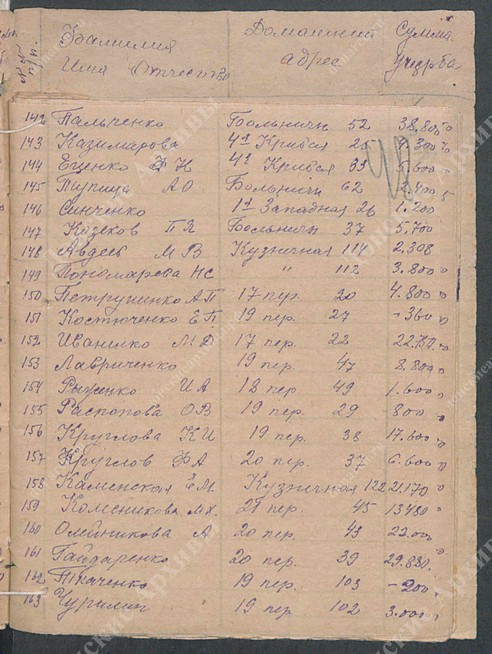 №№ п/п. Фамилия Имя Отчество Домашний адрес Сумма ущерба
142 Пальченко Больничн 52 38.800
143 Казимарова 4я Кривая
144 Ещенко Ф Н 4я Кривая 39 5.600
145 Пупица А О Больничн 62 2.400
146 Синченко 1я Западная 26 1.200
147 Козеков П Я Больничн 37 5.700
148 Авдеев М В Кузничная 114 2.398
149 Пономарева Н С " 112 3.800
150 Петрушенко А П 17 пер. 20 4.800
151 Костюченко Е П. 19 пер. 27 - 360
152 Иваненко М Д 17 пер. 22
153 Лавриченко 19 пер. 47 8.800
154 Рыженко И А 18 пер 49 1.600
155 Распопова О В 19 пер. 29 800
156 Круглова К И 19 пер. 38 17.600
157 Круглов Ф А 20 пер. 37 6.600
158 Каменская Е М. Кузничная 122 21.170
159 Коменикова М Х. 21 пер. 45 13480
160 Олейникова А 20 пер. 43 22.000
161 Гайдаренко 20 пер. 39 29.880
162 Ткаченко 19 пер. 103 - 200
163 19 пер 102 3.000